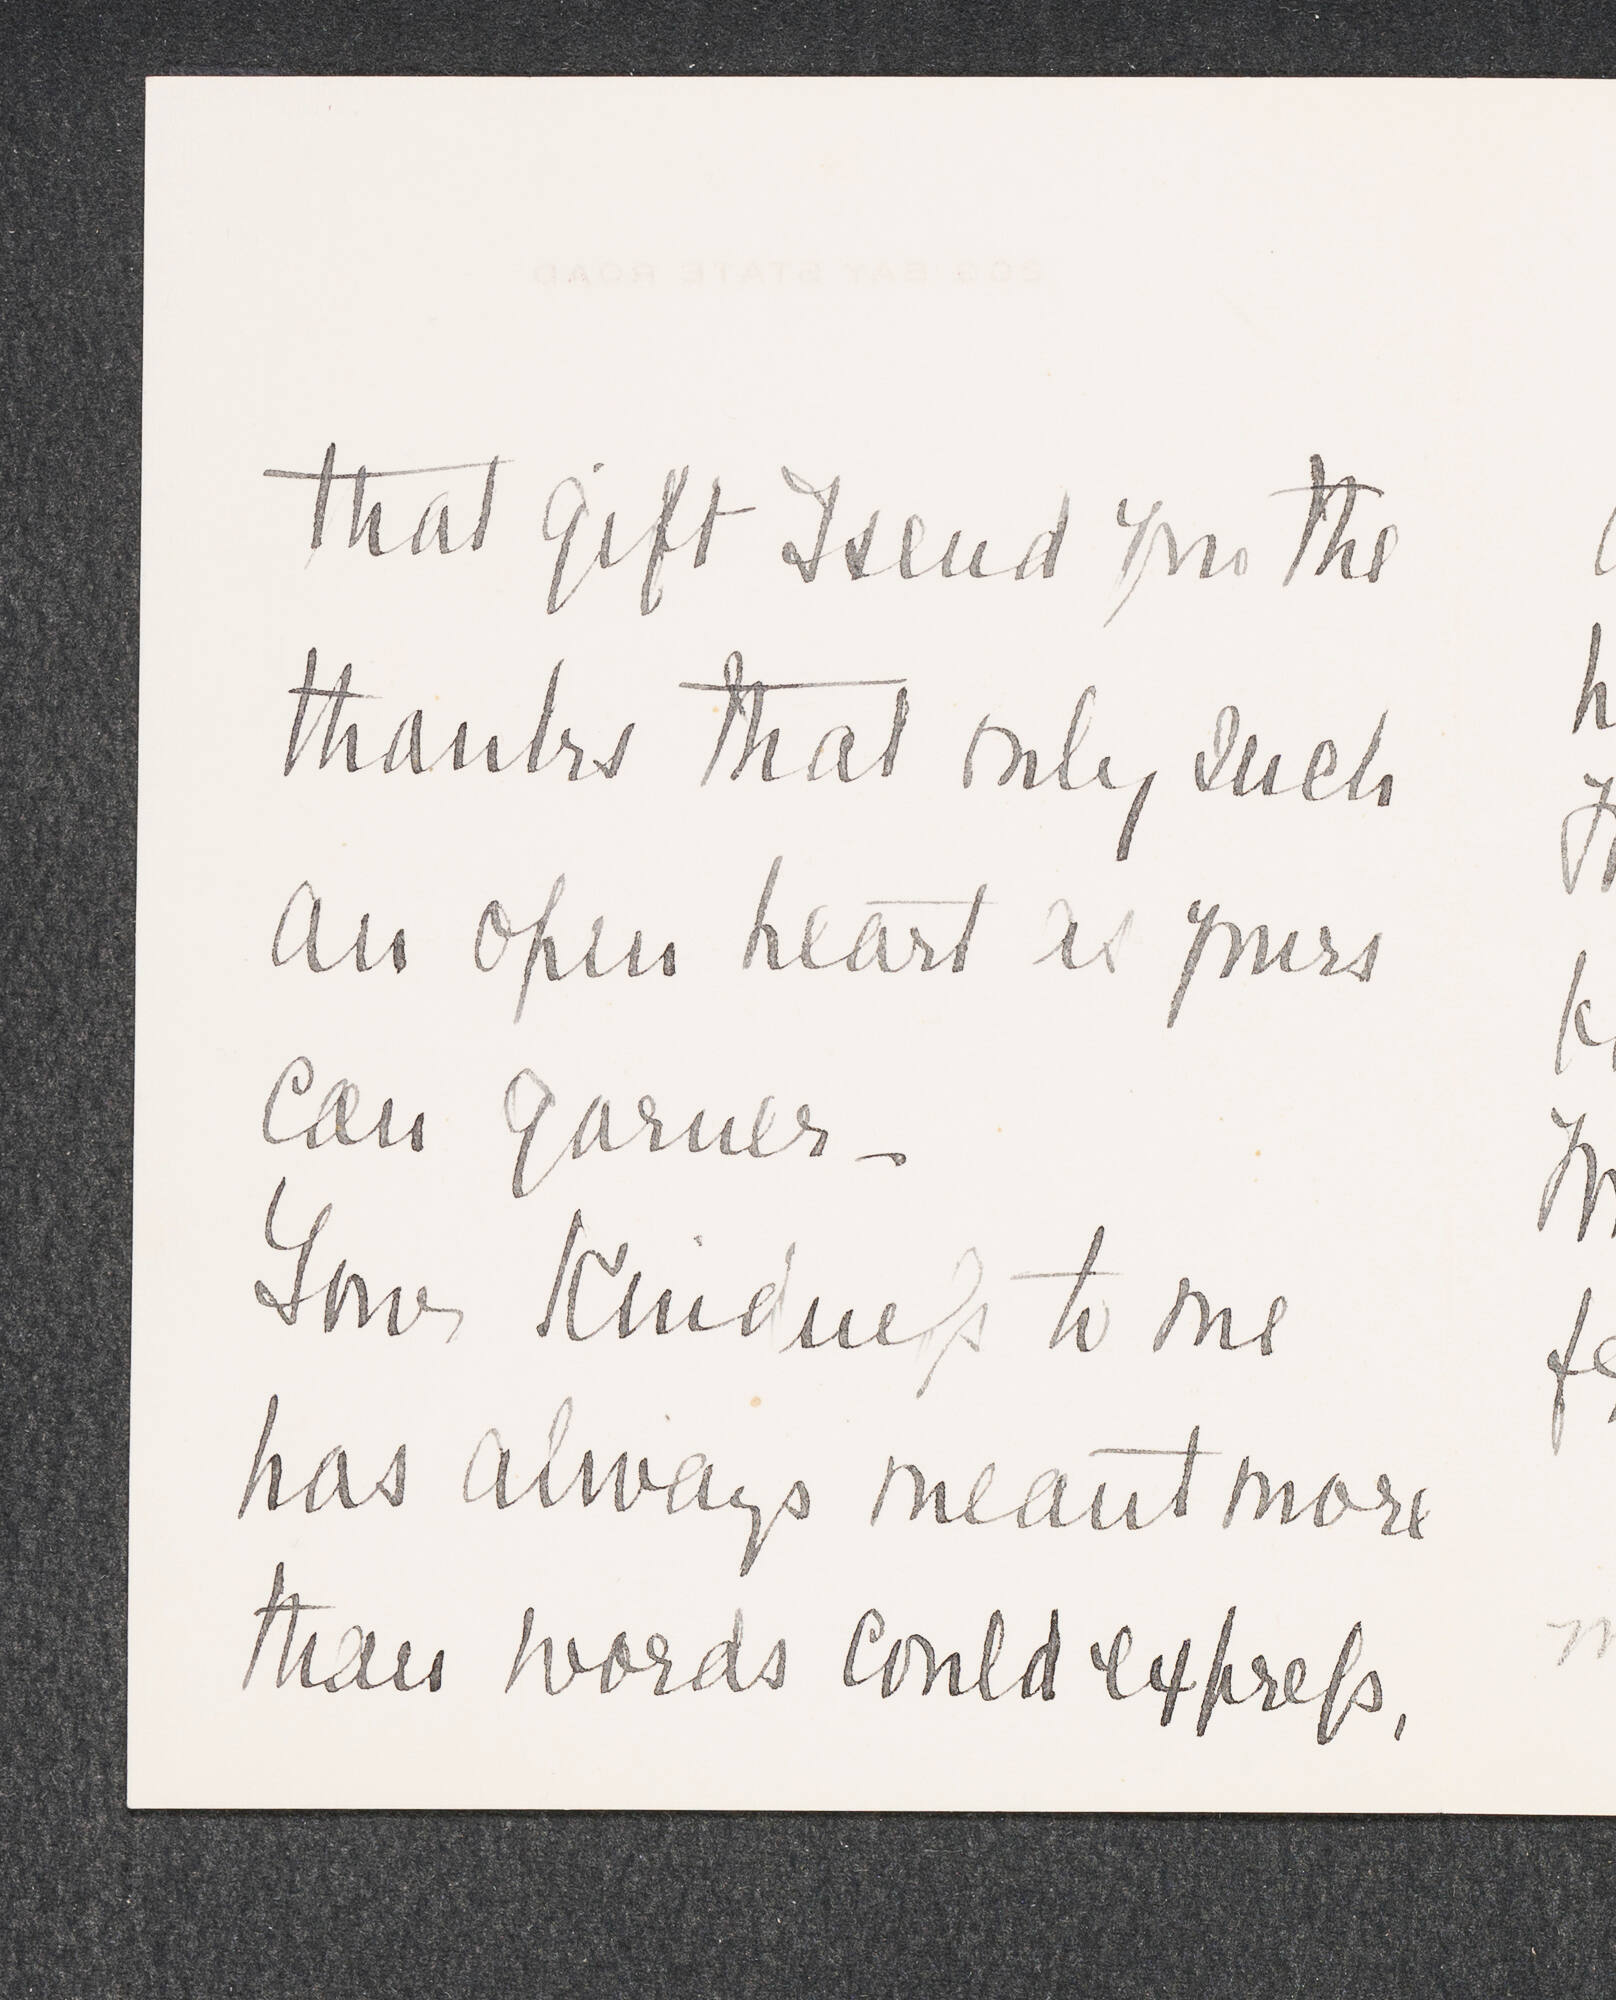 that gift I send you the
thanks that only such
an open heart as yours
can garner_
Your kindness to me
has always meant more
than words could express.